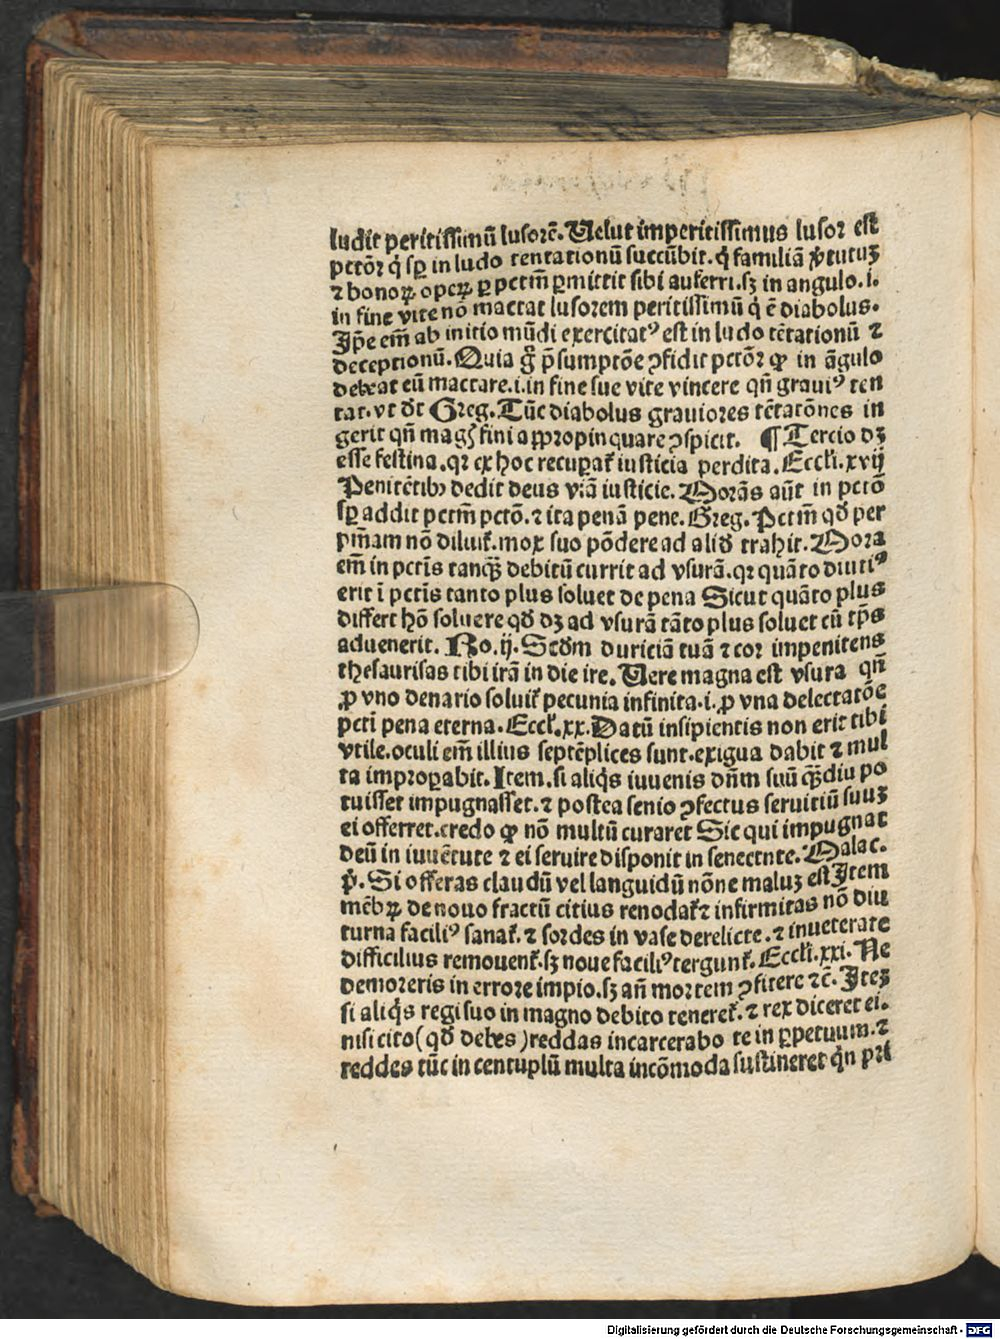 ludit peritissimū lusorē. Uelut imperitissimus lusor est
pctōr q̇ sꝑ in ludo tentationū succūbit. q̇ familiā ꝟtutuꝫ
⁊ bonoꝝ opeꝝ ꝑ pctm̄ ꝑmittit sibi auferri. sꝫ in angulo. i.
in fine vite nō mactat lusorem peritissimū q̇ ē diabolus.
Ip̄e em̄ ab initio mūdi exercitatꝰ est in ludo tētationū ⁊
deceptionū. Quia g̊ p̄sumptōe ꝯfidit pctōr ꝙ in āgulo
debeat eū mactare. i. in fine sue vite vincere qn̄ grauiꝰ ten
tat. vt dt̄ Greg. Tūc diabolus grauiores tētatōnes in
gerit qn̄ magꝭ fini appropinquare ꝯspicit. ¶ Tercio dꝫ
esse festina. qꝛ ex hoc recuꝑat᷑ iusticia perdita. Eccli. xvij
Penitētibꝰ dedit deus viā iusticie. Morās aūt in pctō
sꝑ addit pctm̄ pctō. ⁊ ita penā pene. Greg. Pctm̄ qd̄ per
pn̄iam nō diluit᷑. mox suo pōdere ad aliud trahit. Mora
em̄ in pctīs tanqꝫ debitū currit ad vsurā. qꝛ quāto diutiꝰ
erit ī pctis tanto plus soluet de pena Sicut quāto plus
differt hō soluere qd̄ dꝫ ad vsurā tāto plus soluet cū tp̄s
aduenerit. Ro. ij. Scd̄m duriciā tuā ⁊ cor impenitens
thesaurisas tibi irā in die ire. Uere magna est vsura qn̄
ꝓ vno denario soluit᷑ pecunia infinita. i. ꝓ vna delectatōe
pcti pena eterna. Eccl᷑. xx. Datū insipientis non erit tibi
vtile. oculi em̄ illius septēplices sunt. exigua dabit ⁊ mul
ta improꝑabit. Item. si aliq̇s iuuenis dn̄m suū qꝫdiu po
tuisset impugnasset. ⁊ postea senio ꝯfectus seruitiū suuꝫ
ei offerret. credo ꝙ nō multū curaret Sic qui impugnat
deū in iuuētute ⁊ ei seruire disponit in senectnte. Malac.
p̊. Si offeras claudū vel languidū nōne maluꝫ est Item
mēbꝝ de nouo fractū citius renodat᷑ ⁊ infirmitas nō diu
turna faciliꝰ sanat᷑. ⁊ sordes in vase derelicte. ⁊ inueterate
difficilius remouent᷑. sꝫ noue faciliꝰ tergunt᷑. Eccli. xxi. Ne
demoreris in errore impio. sꝫ an̄ mortem ꝯfitere ⁊c̄. Iteꝫ
si aliq̇s regi suo in magno debito teneret᷑. ⁊ rex diceret ei.
nisi cito (qd̄ debes) reddas incarcerabo te in ꝑpetuum. ⁊
reddes tūc in centuplū multa incōmoda sustineret q̇n pri
Digitalisierung gefördert durch die Deutsche Forschungsgemeinschaft - DFG